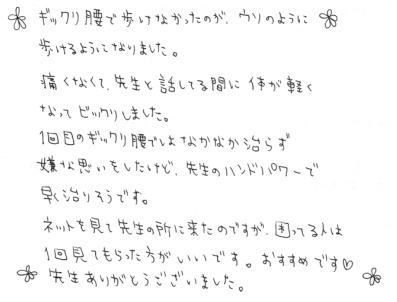 ギックリ腰で歩けなかったのが、ウソのように
歩けるようになりました。
痛くなくて、先生と話してる間に体が軽く
なってビックリしました。
1回目のギックリ腰ではなかなか治らず
嫌な思いをしたけど、先生のハンドパワーで
早く治りそうです。
ネットを見て先生の所に来たのですが、困ってる人は
1回見てもらった方がいいです。おすすめです♡
先生ありがとうございました。